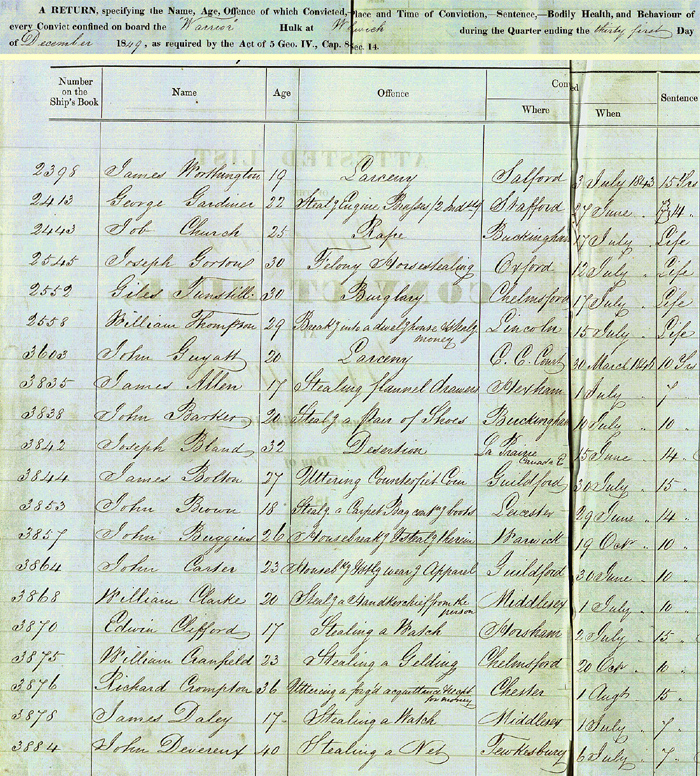 A RETURN, specifying the Name, Age, Offence of which Convicted, Place and Time of Conviction,—Sentence,—Bodily Health, and Behaviour of
every Convict confined on board the "Warrior" Hulk at Woolwich during the Quarter ending the thirty first Day
of December 1849, as required by the Act of 5 Geo. IV., Cap. 8 Sec. 14.
Number on the Ship's Book Name Age Offence Where When Sentence
2398 James Worthington 19 Larceny Salford 3 July 1843 15 Yrs
2413 George Gardiner 22 Steal'g Engine Brasses Stafford 27 June " 14 "
2443 Job Church 25 Rape Buckingham 17 July " Life
2545 Joseph Gorton 30 Felony Horsestealing Oxford 12 July " Life
2552 Giles Tunstill 30 Burglary Chelmsford 17 July " Life
2558 William Thompson 29 Break'g into a dwel'g house & stealg money Lincoln 15 July " Life
3603 John Guyatt 20 Larceny C. C. Court 30 March 1848 10 Yrs
3835 James Allen 17 Stealing flannel drawers Hexham 1 July " 7 "
3838 John Barker 20 Steal'g a pair of Shoes Buckingham 10 July " 10 "
3842 Joseph Bland 32 Desertion La Prairie Canada E 15 June " 14 "
3844 James Bolton 27 Uttering Counterfeit Coin Guildford 30 July " 15 "
3853 John Brown 18 Steal'g a Carpet Bag boots Leicester 29 June " 14 "
3857 John Buggins 26 Housebreak'g & steal'g therein Warwick 19 Oct " 10 "
3864 John Carter 23 Housebk'g wear'g Apparel Guildford 30 June " 10 "
3868 William Clarke 20 Steal'g a Handkerchief from the person Middlesex 1 July " 10 "
3870 Edwin Clifford 17 Stealing a Watch Horsham 2 July " 15 "
3875 William Cranfield 23 Stealing a Gelding Chelmsford 20 Oct " 10 "
3876 Richard Crompton 36 Uttering a forg'd acquittance & rect for money Chester 1 Augt " 15 "
3878 James Daley 17 Stealing a Watch Middlesex 1 July " 7 "
3884 John Devereux 40 Stealing a Net Tewkesbury 6 July " 7 "